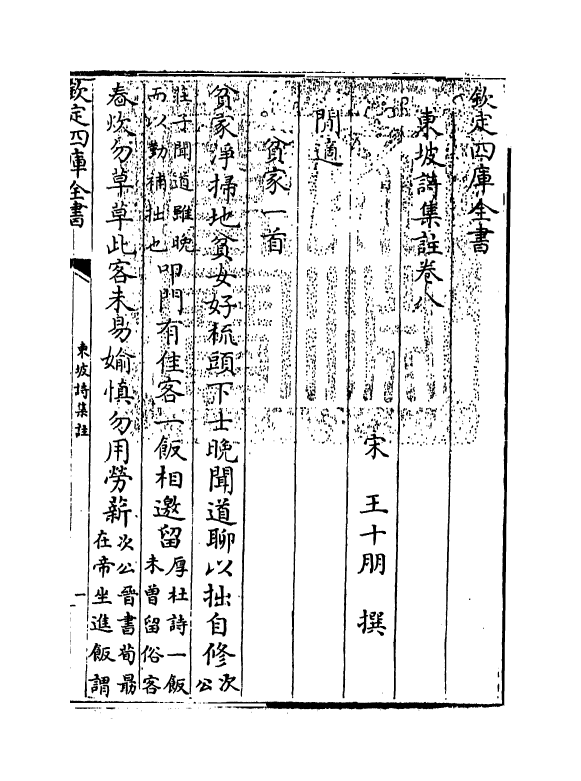 欽定四庫全書
東坡詩集註卷八
宋 王十朋 撰
閒適
貧家一首
貧家淨掃地貧女好梳頭下士晚聞道聊以拙自修次公
莊子聞道雖晚而以勤補拙也叩門有佳客一飯相邀留厚杜詩一飯未曾留俗客
春炊勿草草此客未易媮慎勿用勞薪次公晉書荀朂在帝坐進飯謂
欽定四庫全書 東坡詩集註 一